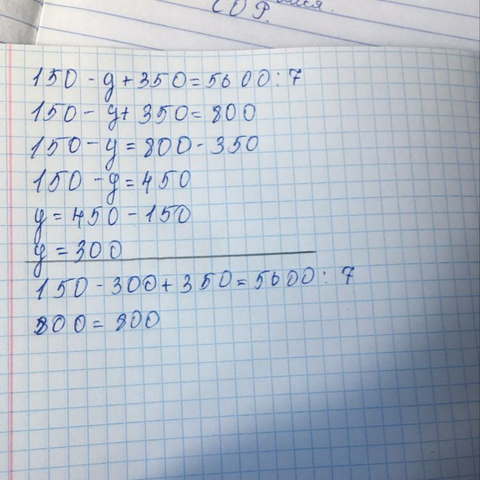 СОР.
150 - y + 350 = 5600 : 7
150 - y + 350 = 800
150 - y = 800 - 350
150 - y = 450
y = 450 - 150
y = 300
150 - 300 + 350 = 5600 : 7
800 = 800